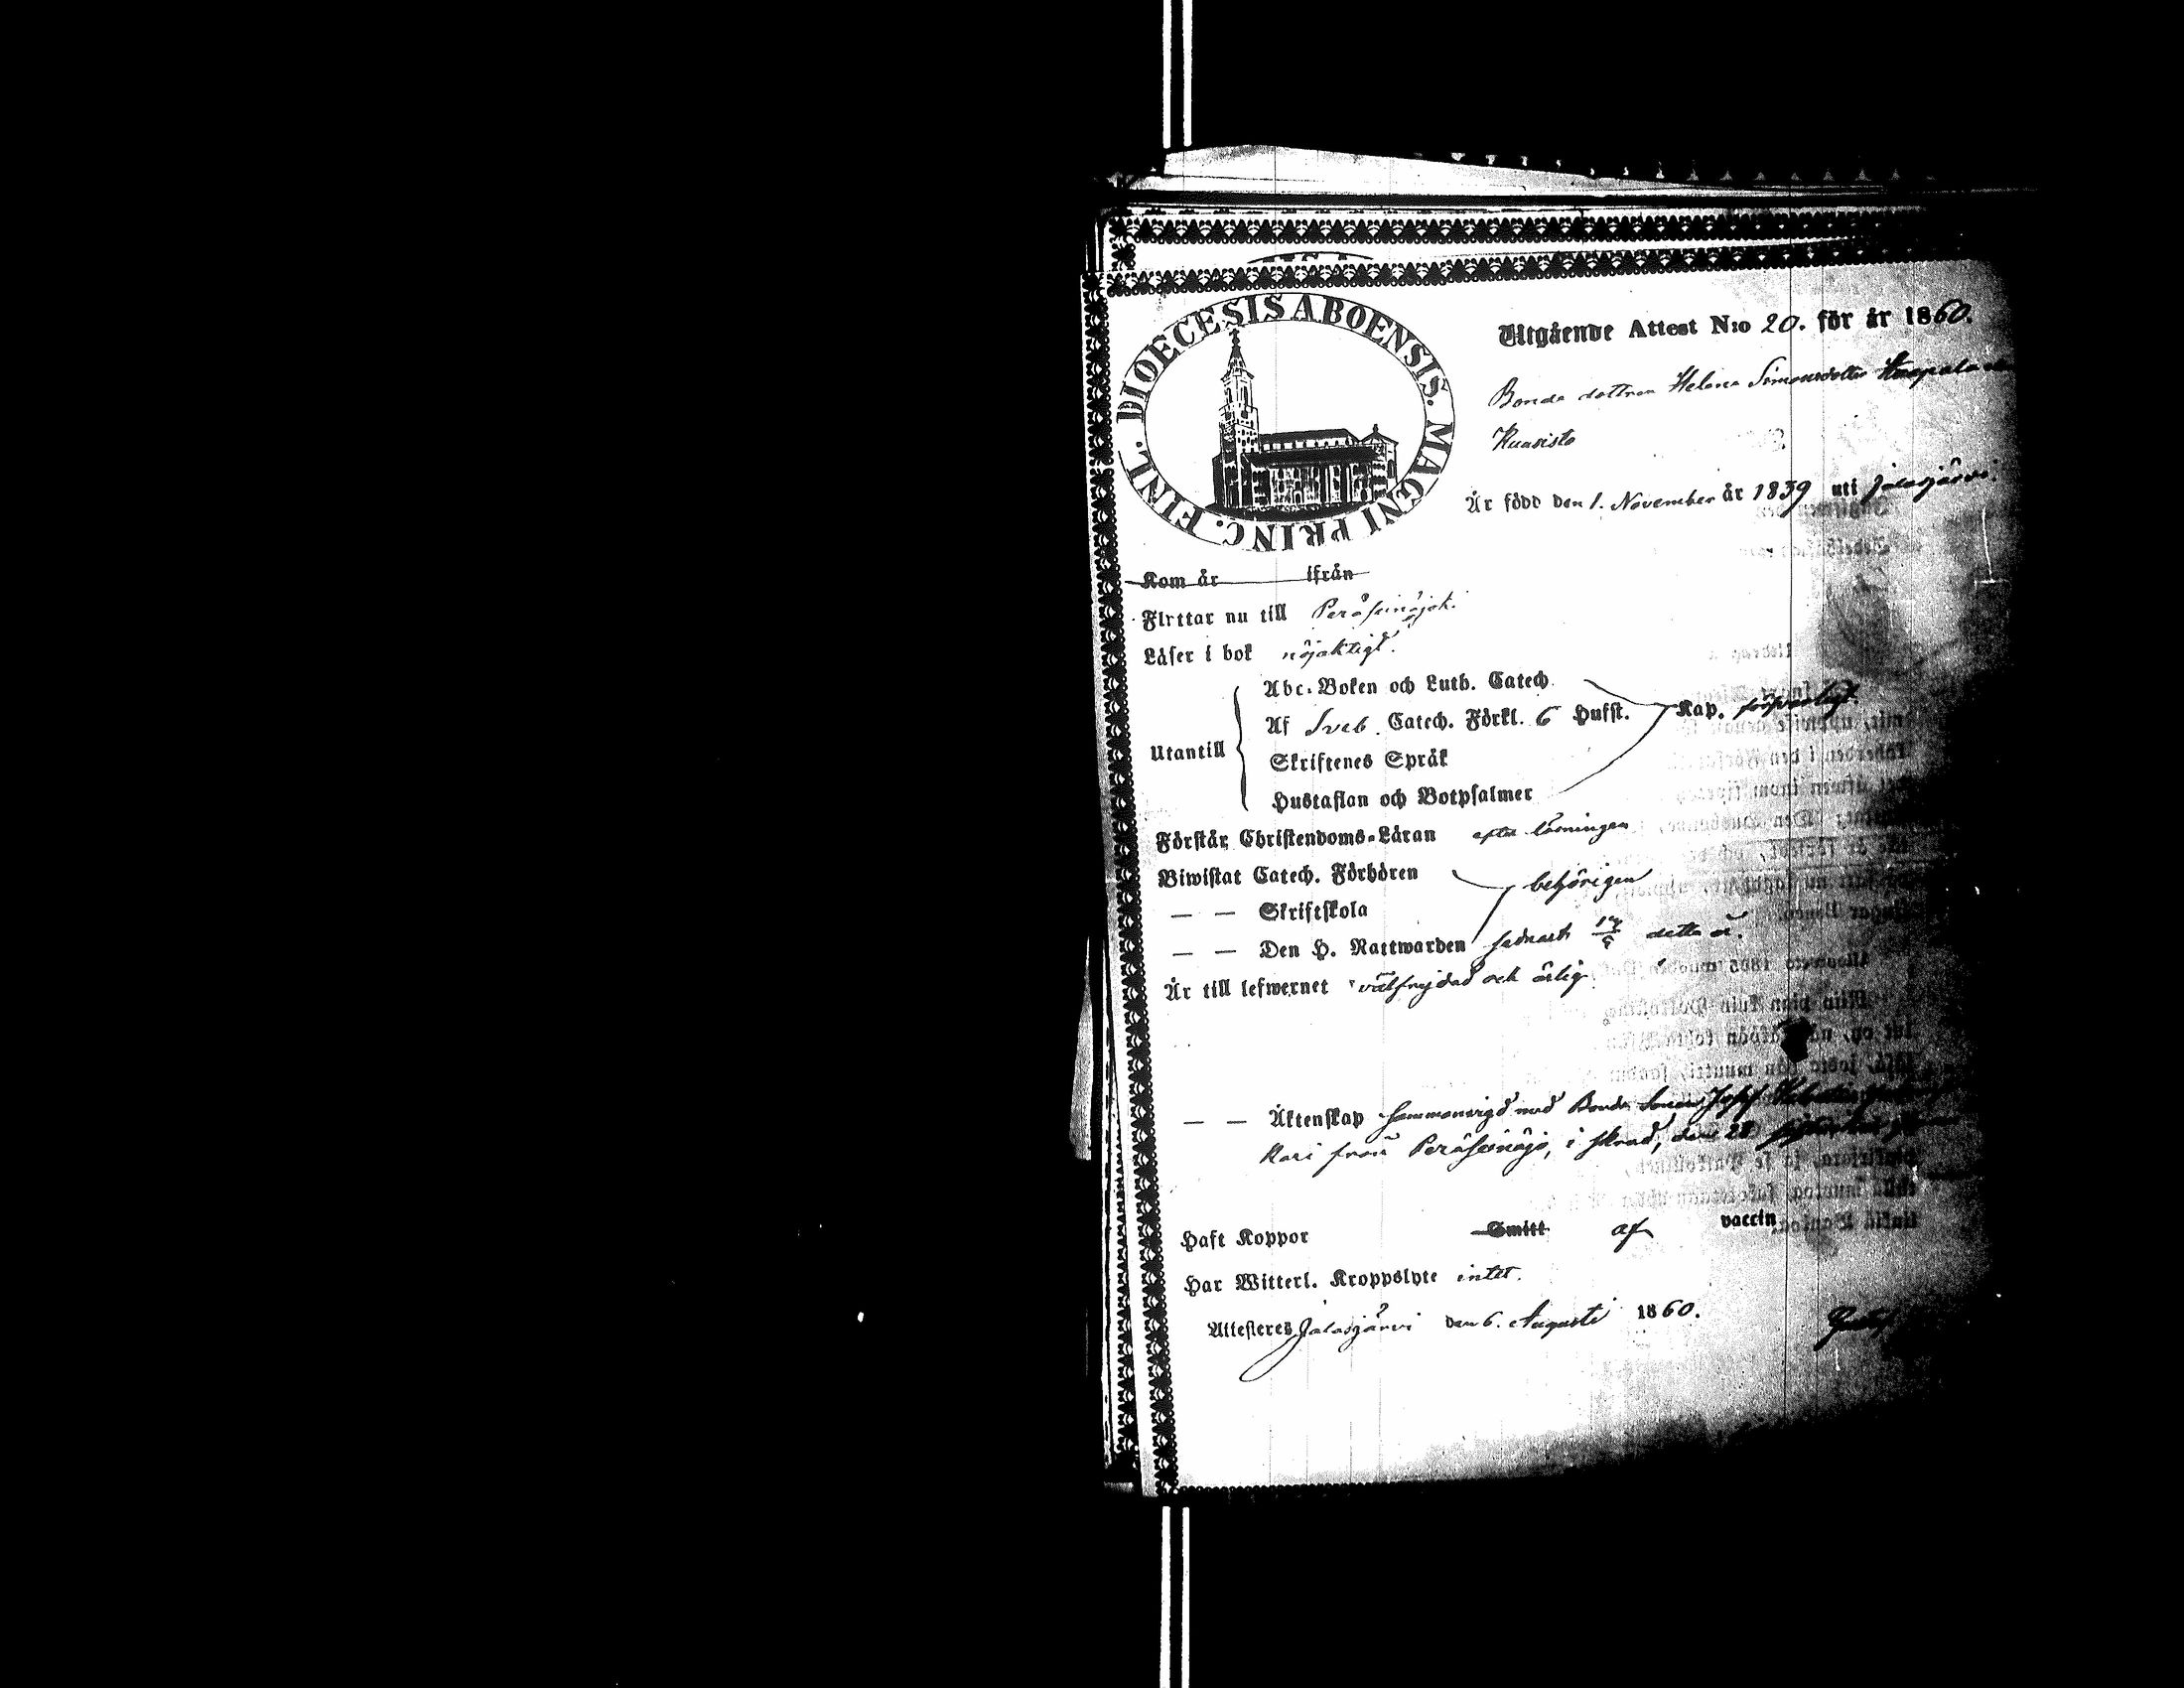 DIOECESIS ABOENSIS. MAGNI PRINC. FINL.
Utgående Attest N:o 20. för år 1860.
Bonde dottren Helena Simonsdotter
Kuusisto
Är född den 1. November år 1839 uti Jalasjärvi.
Kom år ifrån
Flyttar nu till Peräseinäjok.
Läser i bok nöjaktigt.
Abc-Boken och Luth. Catech.
Af Sveb. Catech. Förkl. 6 Hufst. Kap. försvarligt.
Utantill
Skriftenes Språk
Hustaflan och Botpsalmer
Förstår Christendoms-Läran efter läsningen
Biwistat Catech. Förhören behörigen
— — Skriftskola
— — Den H. Nattwarden sednast detta år.
Är till lefwernet välfrejdad och ärlig.
— — Äktenskap sammanvigd med Bonde sonen Josef
Kari från Peräseinäjo, den 28
Haft Koppor Smitt af vaccin
Har Witterl. Kroppslyte intet.
Attesteres Jalasjärvi den 6. Augusti 1860.
Gustaf